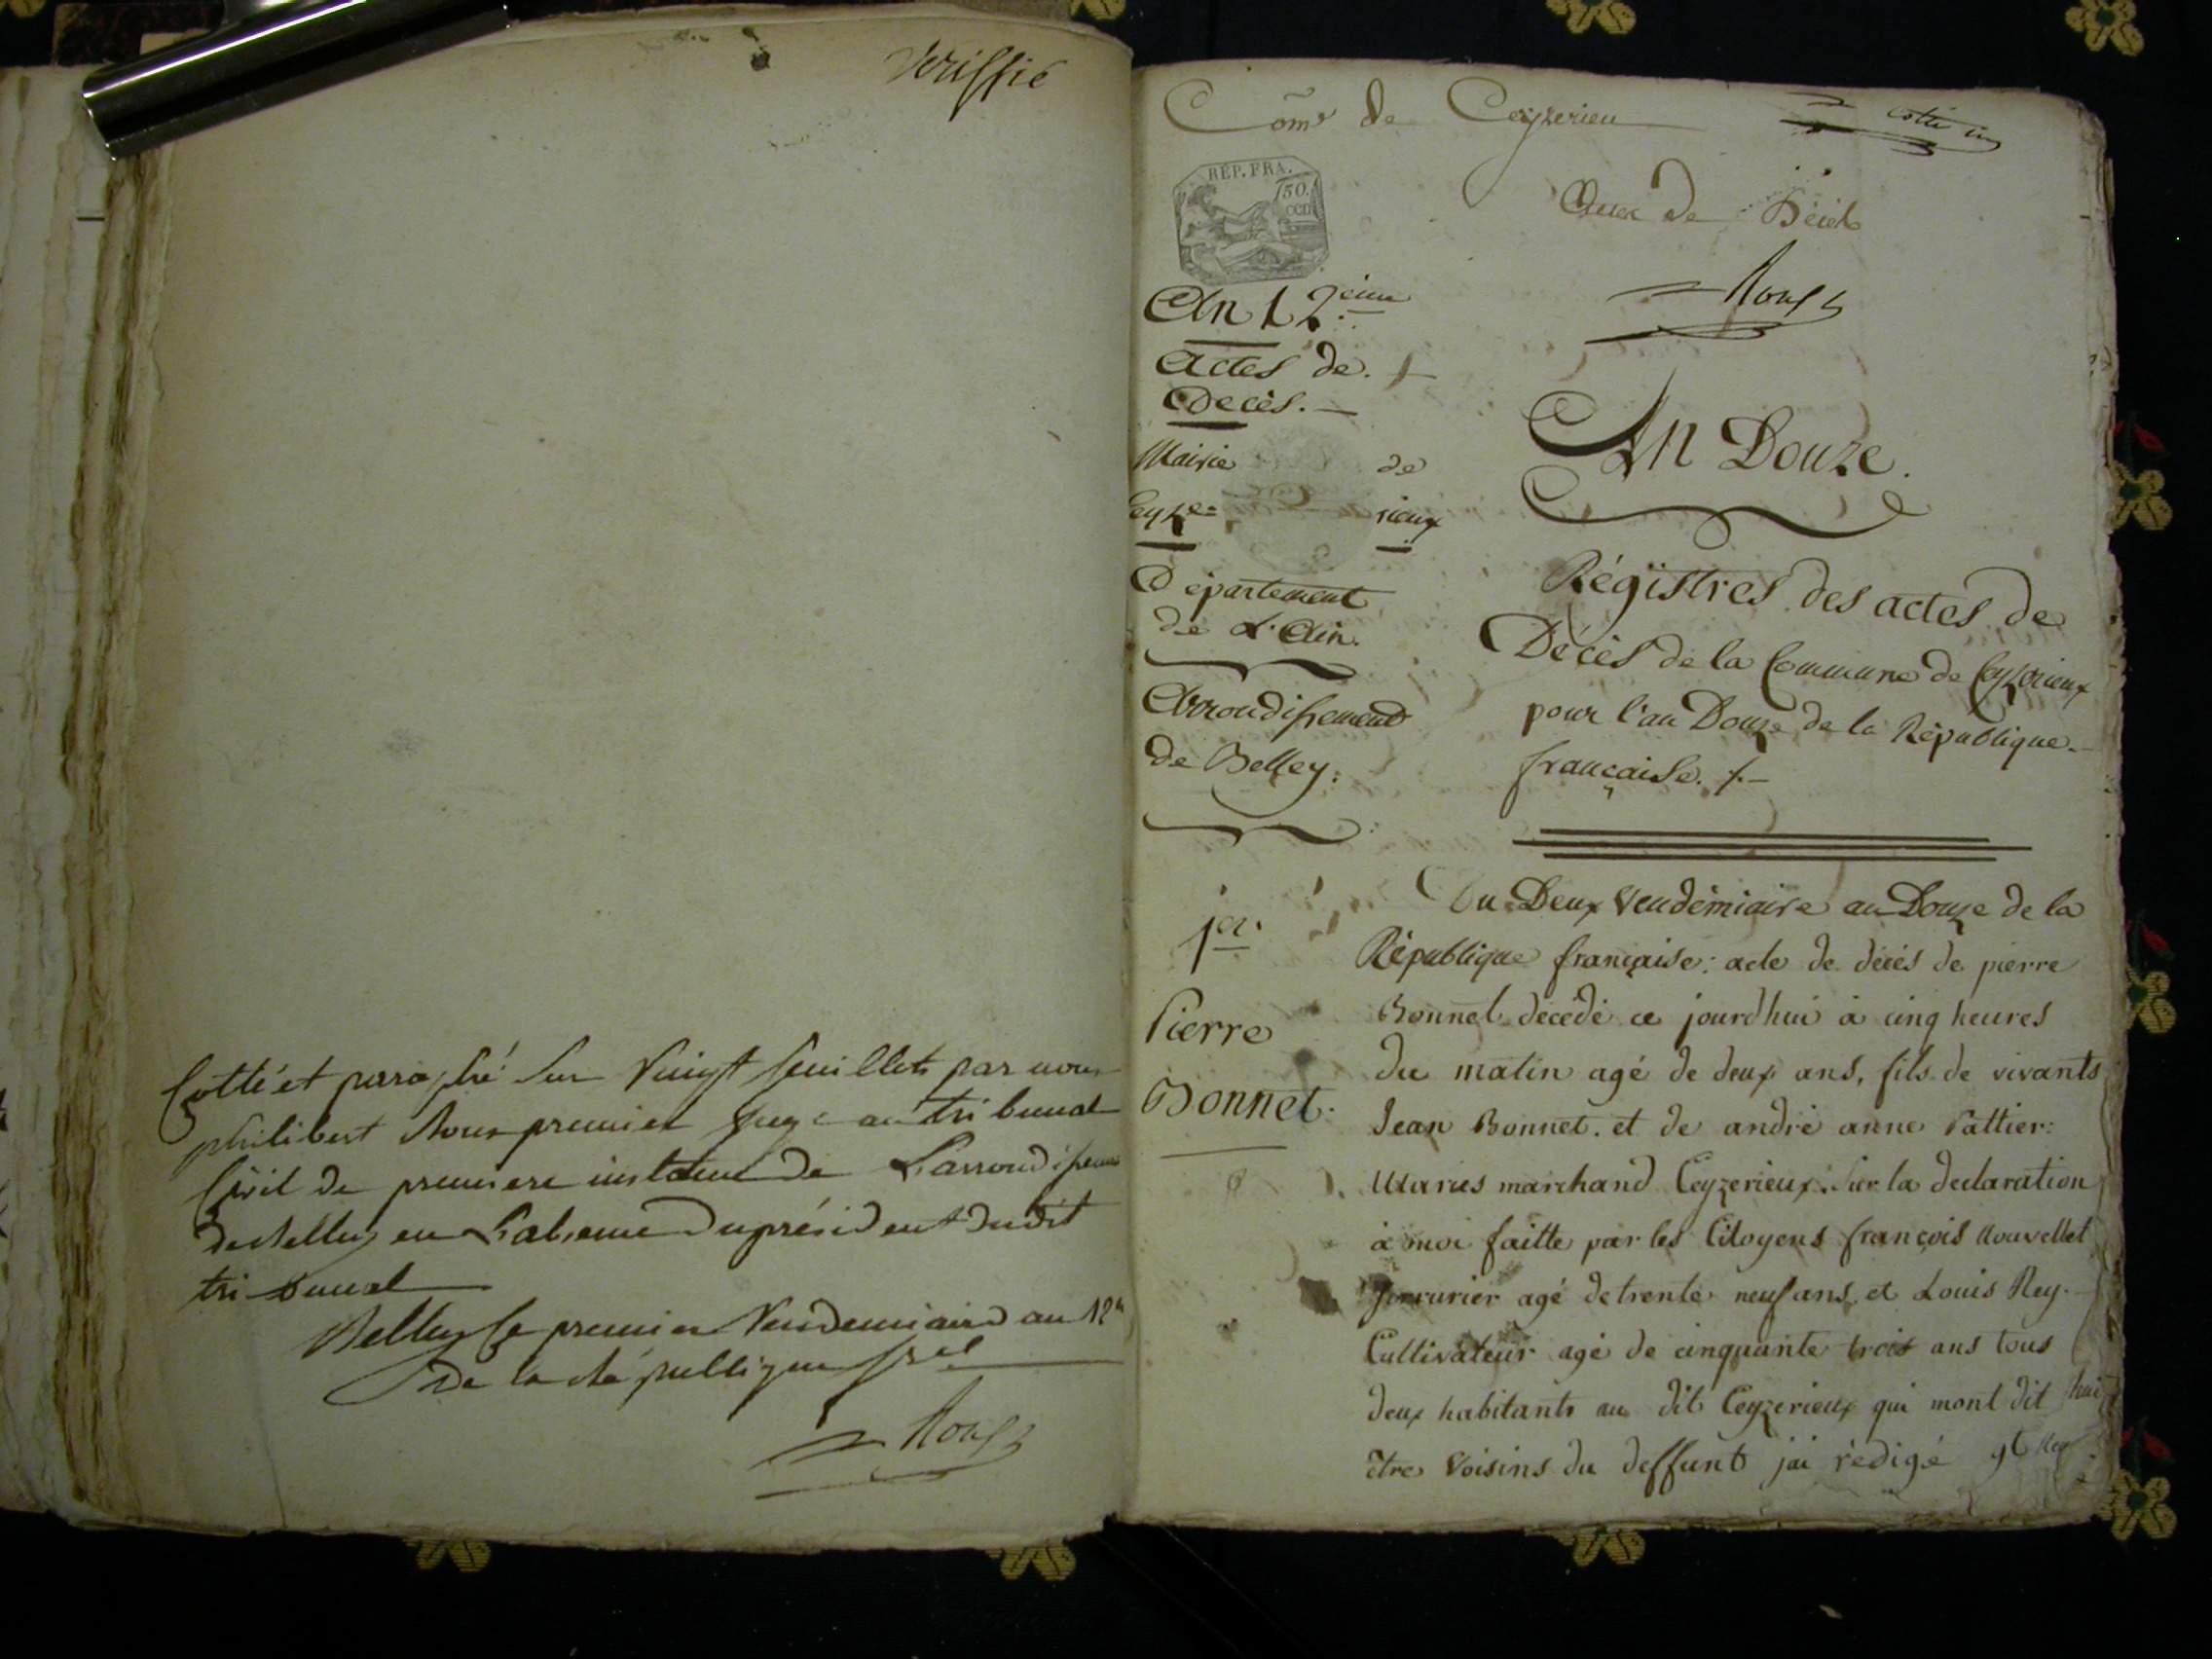 Veriffié
Cotté et paraphé Sur Vingt feuillets par nous
philibert Roux premier juge au tribunal
Civil de premiere instance de L'arrondissem
de Belley en L'absence du président dudit
tribunal
Belley le premier Vendemiaire an 12e
De la République
Roux
Com̃e de Ceyzerieu
REP. FRA.
50.
cen
Acte de Décès
Roux
An 12eme
Actes de
Decès.
Mairie de
Ceyze= rieux
Département
de L'Ain.
Arrondissement
de Belley.
An Douze.
Régistres des actes de
Décès de la Commune de Ceyzerieux
pour l'an Douze de la République
française.
1er
Pierre
Bonnet.
Du Deux Vendémiaire an Douze de la
République française: acte de décés de pierre
Bonnet décédé ce jourd'hui à cinq heures
du matin agé de deux ans, fils de vivants
Jean Bonnet. et de andré anne Pattier:
Mariés marchand Ceyzerieux. Sur la declaration
à moi faitte par les Citoyens françois Nouvellet
Serrurier agé de trente neuf ans et Louis Rey.
Cultivateur agé de cinquante trois ans tous
deux habitants au dit Ceyzerieux qui mont dit
être Voisins du deffunt jai rédigé